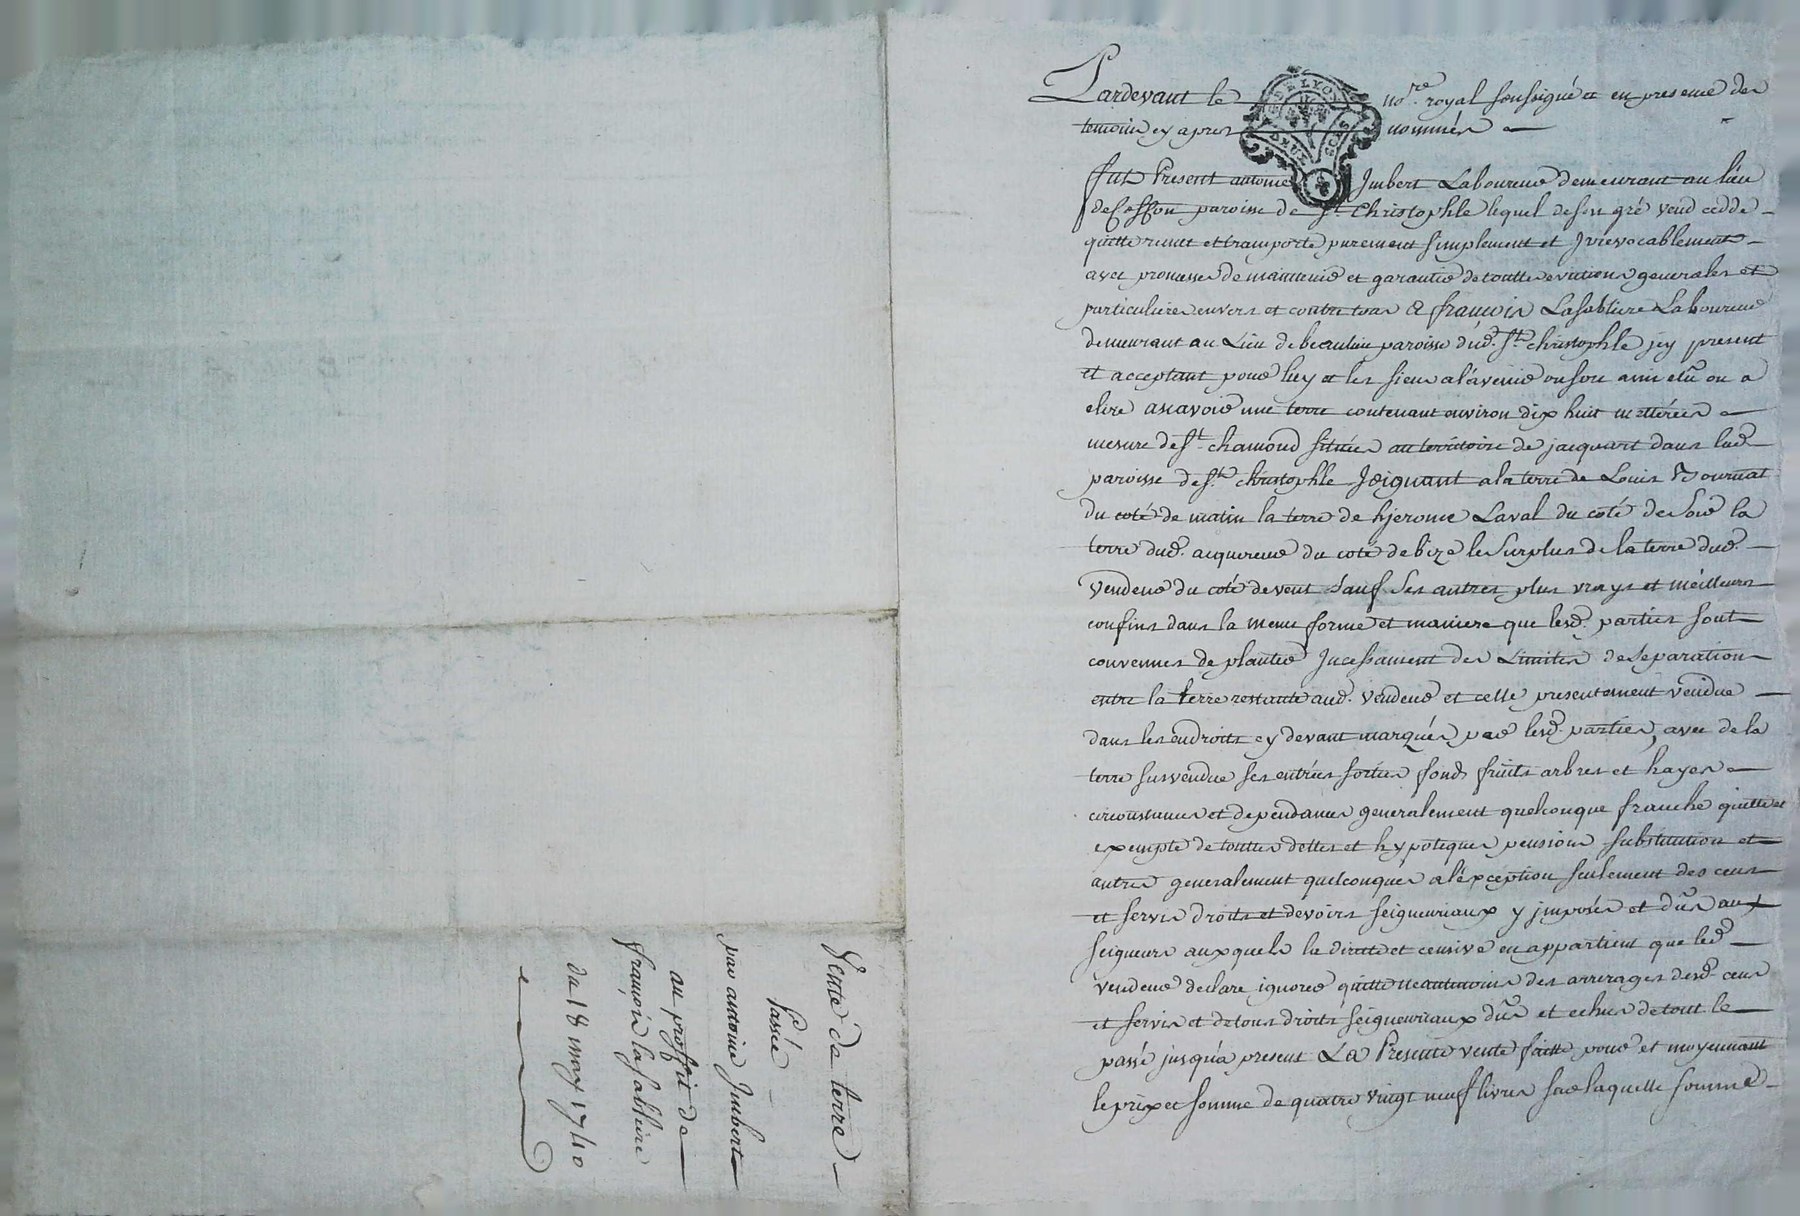 Pardevant le no.re royal soussigné et en presence des
temoins cy apres nommés
fut Present antoine Jmbert Laboureur demeurant au lieu
de paroisse de St. Christophle lequel de son gré vend cedde
quitte remet et transporte purement simplement et Jrrevocablement
avec promesse de maintenir et garantir de toutte evictions generales et
particulieres envers et contre tous a françois Lasabliere Laboureur
demeurant au Lieu de beaulieu paroisse dud. St. christophle jcy present
et acceptant pour luy et les siens a l'avenir ou son amy elu ou a
elire ascavoir une terre contenant environ dix huit metterées
mesure de St. chamond située au territoire de jacquart dans lad.
paroisse de St. christophle Joignant a la terre de Louis Journat
du coté de matin la terre de hjerome Laval du coté de Soir la
terre dud. acquereur du coté de bize le Surplus de la terre dud.
vendeur du coté de vent Sauf Ses autres plus vrays et meilleurs
confins dans la meme forme et maniere que lesd. parties sont
convenues de planter Jncessament des Limites de Separation
entre la terre restante aud. vendeur et celle presentement vendue
dans les endroits cy devant marqués par lesd. parties, avec de la
terre susvendue ses entrées sorties fonds fruits arbres et hayes
circonstances et dependances generalement quelconque franche quitte et
exempte de touttes dettes et hypoteques pensions substitution et
autres generalement quelconques a l'exception seulement des cens
et servis droits et devoirs seigneuriaux y jmposés et dus aux
seigneurs auxquels la directe et censive en appartient que led.
vendeur declare ignorer quitte neantmoins des arrerages desd. cens
et servis et de tous droits seigneuriaux dus et echus de tout le
passé jusqu'a present La Presente vente faitte pour et moyennant
le prix et somme de quatre vingt neuf livres sur laquelle somme
Vente de terre
Passée
par antoine Jmbert
au proffit de
françois lasabliere
du 18 may 1740
DE LYON
DEUX SOLS